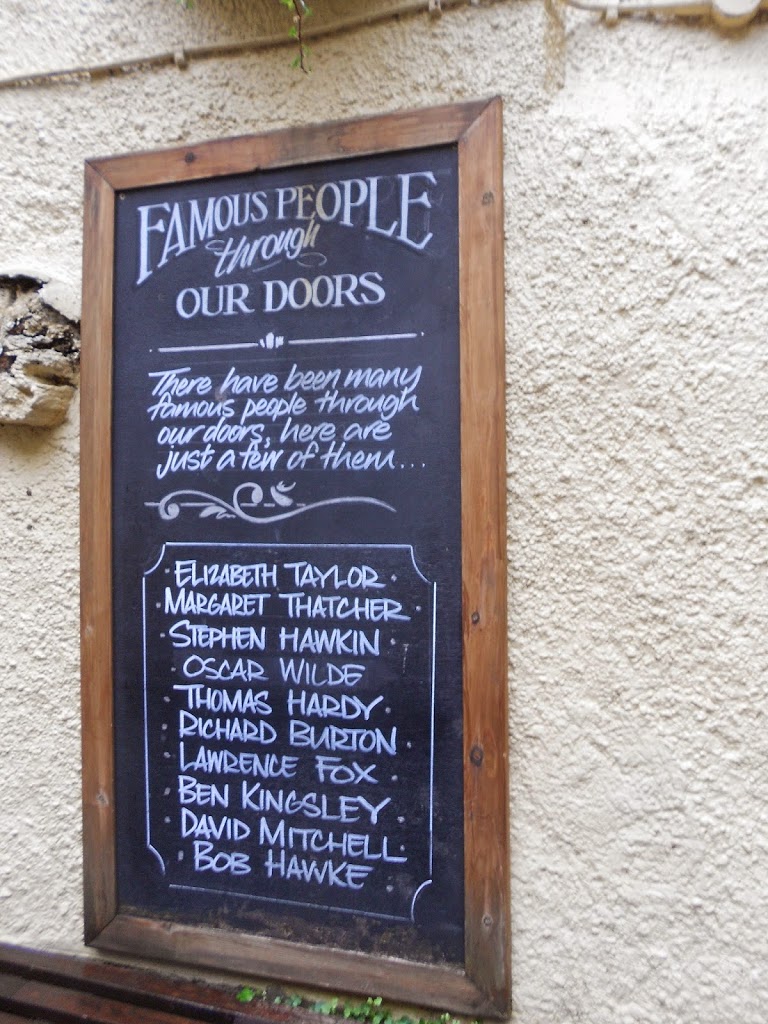 FAMOUS PEOPLE
through
OUR DOORS
There have been many
famous people through
our doors, here are
just a few of them...
· ELIZABETH TAYLOR ·
· MARGARET THATCHER ·
· STEPHEN HAWKIN ·
· OSCAR WILDE ·
· THOMAS HARDY ·
· RICHARD BURTON ·
· LAWRENCE FOX ·
· BEN KINGSLEY ·
· DAVID MITCHELL ·
· BOB HAWKE ·